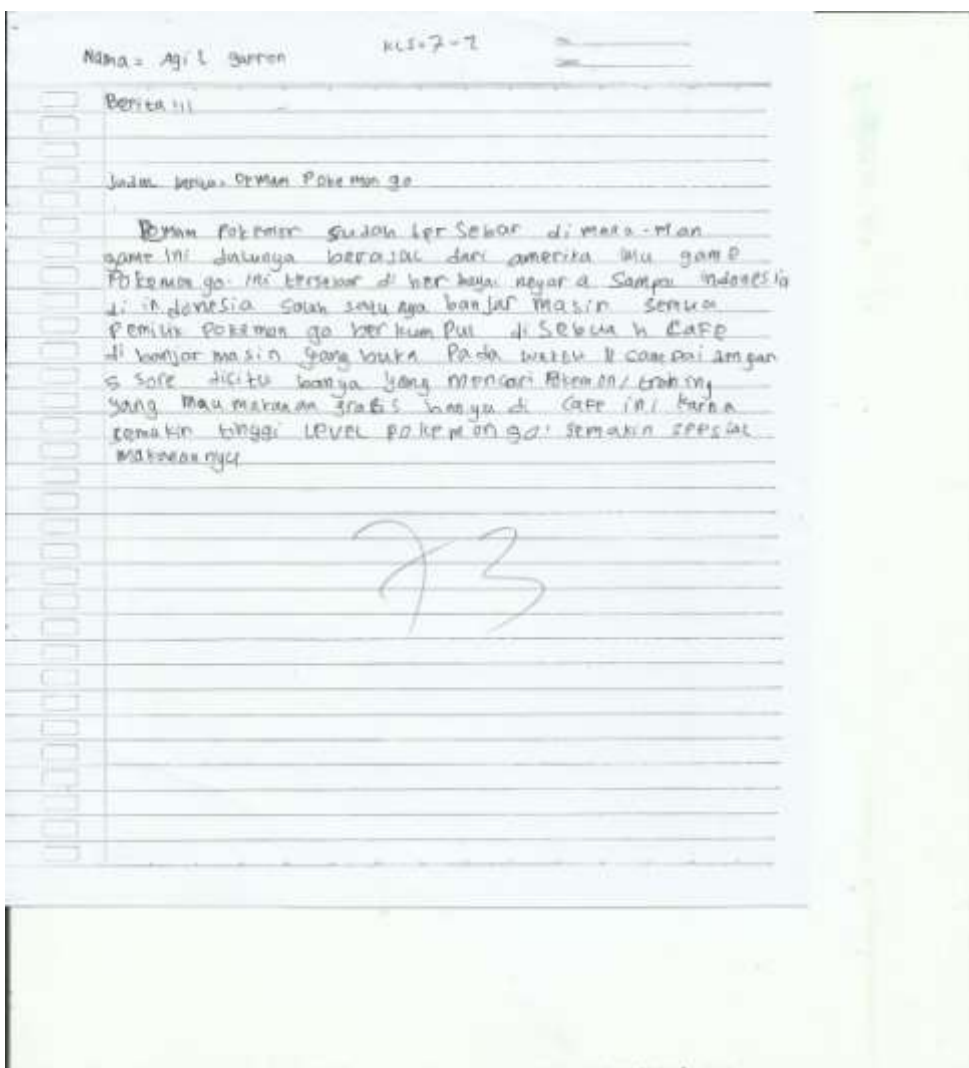 Nama = Agil gurron KLS = 7-2
Berita !!!
Judul berita = Deman Pokemon go
Deman Pokemon sudah ber Sebar di mana-Man
game ini dulunya berasal dari amerika lalu game
Pokemon go ini tersebar di ber bagai negar a Sampai indonesia
di indonesia Salah satu nya banjar masin semua
Pemilik Pokemon go ber kum Pul di Sebua h CaFe
di banjar masin yang buka Pada waktu 11 campai
5 Sore dicitu banya yang mencari Pokemon/
yang Mau makanan gratis hanya di CaFe ini karna
cemakin tinggi Level pokemon go. Semakin spesial
makanannya
73